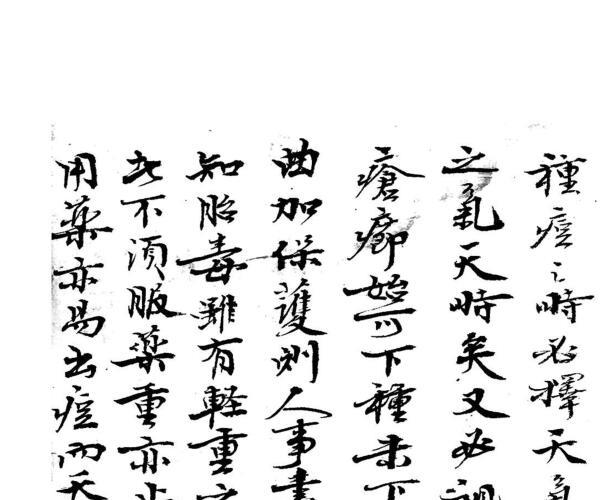 種痘之時必擇天氣
之氣天時矣又必視
瘡癤始可下種未下
曲加保護則人事盡
知胎毒雖有軽重之
此不須服薬重亦
用薬亦易出痘而天